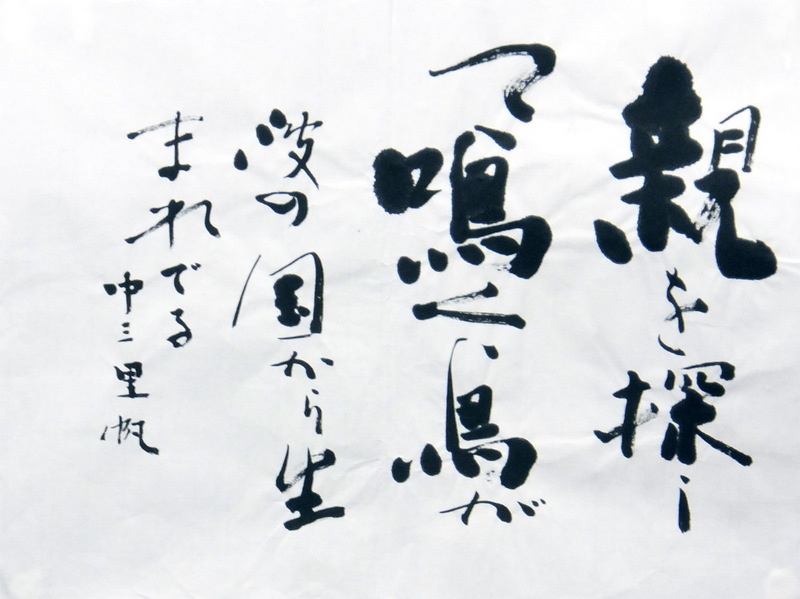 親を探し
て鳴く鳥が
波の国から生
まれでる
中三里帆